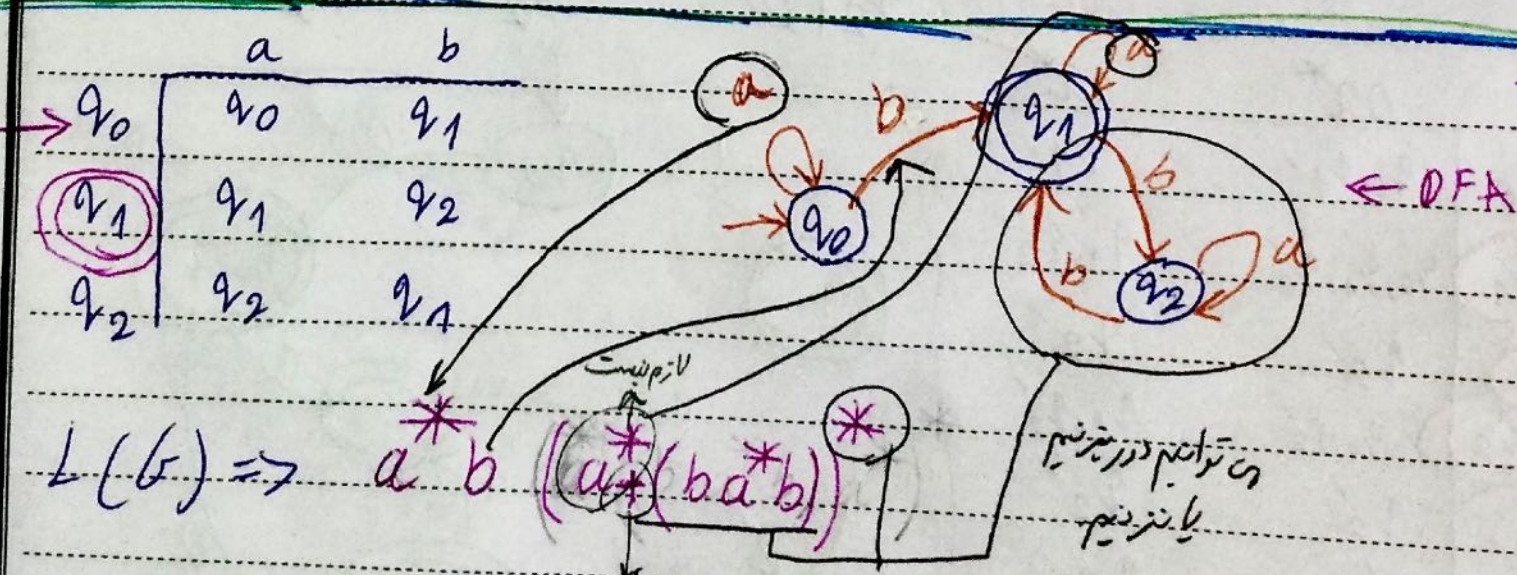 a b
→ q0 q0 q1
q1 q1 q2
q2 q2 q1
a
b
a
q1
q0
b
b
q2
a
← DFA
لازم نیست
L(G) => a* b (a* + (b a* b))*
می توانیم دور بزنیم
یا نزنیم